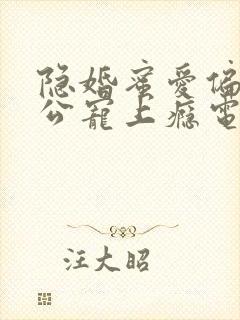 隐婚蜜爱偏
公宠上瘾电
汪大昭